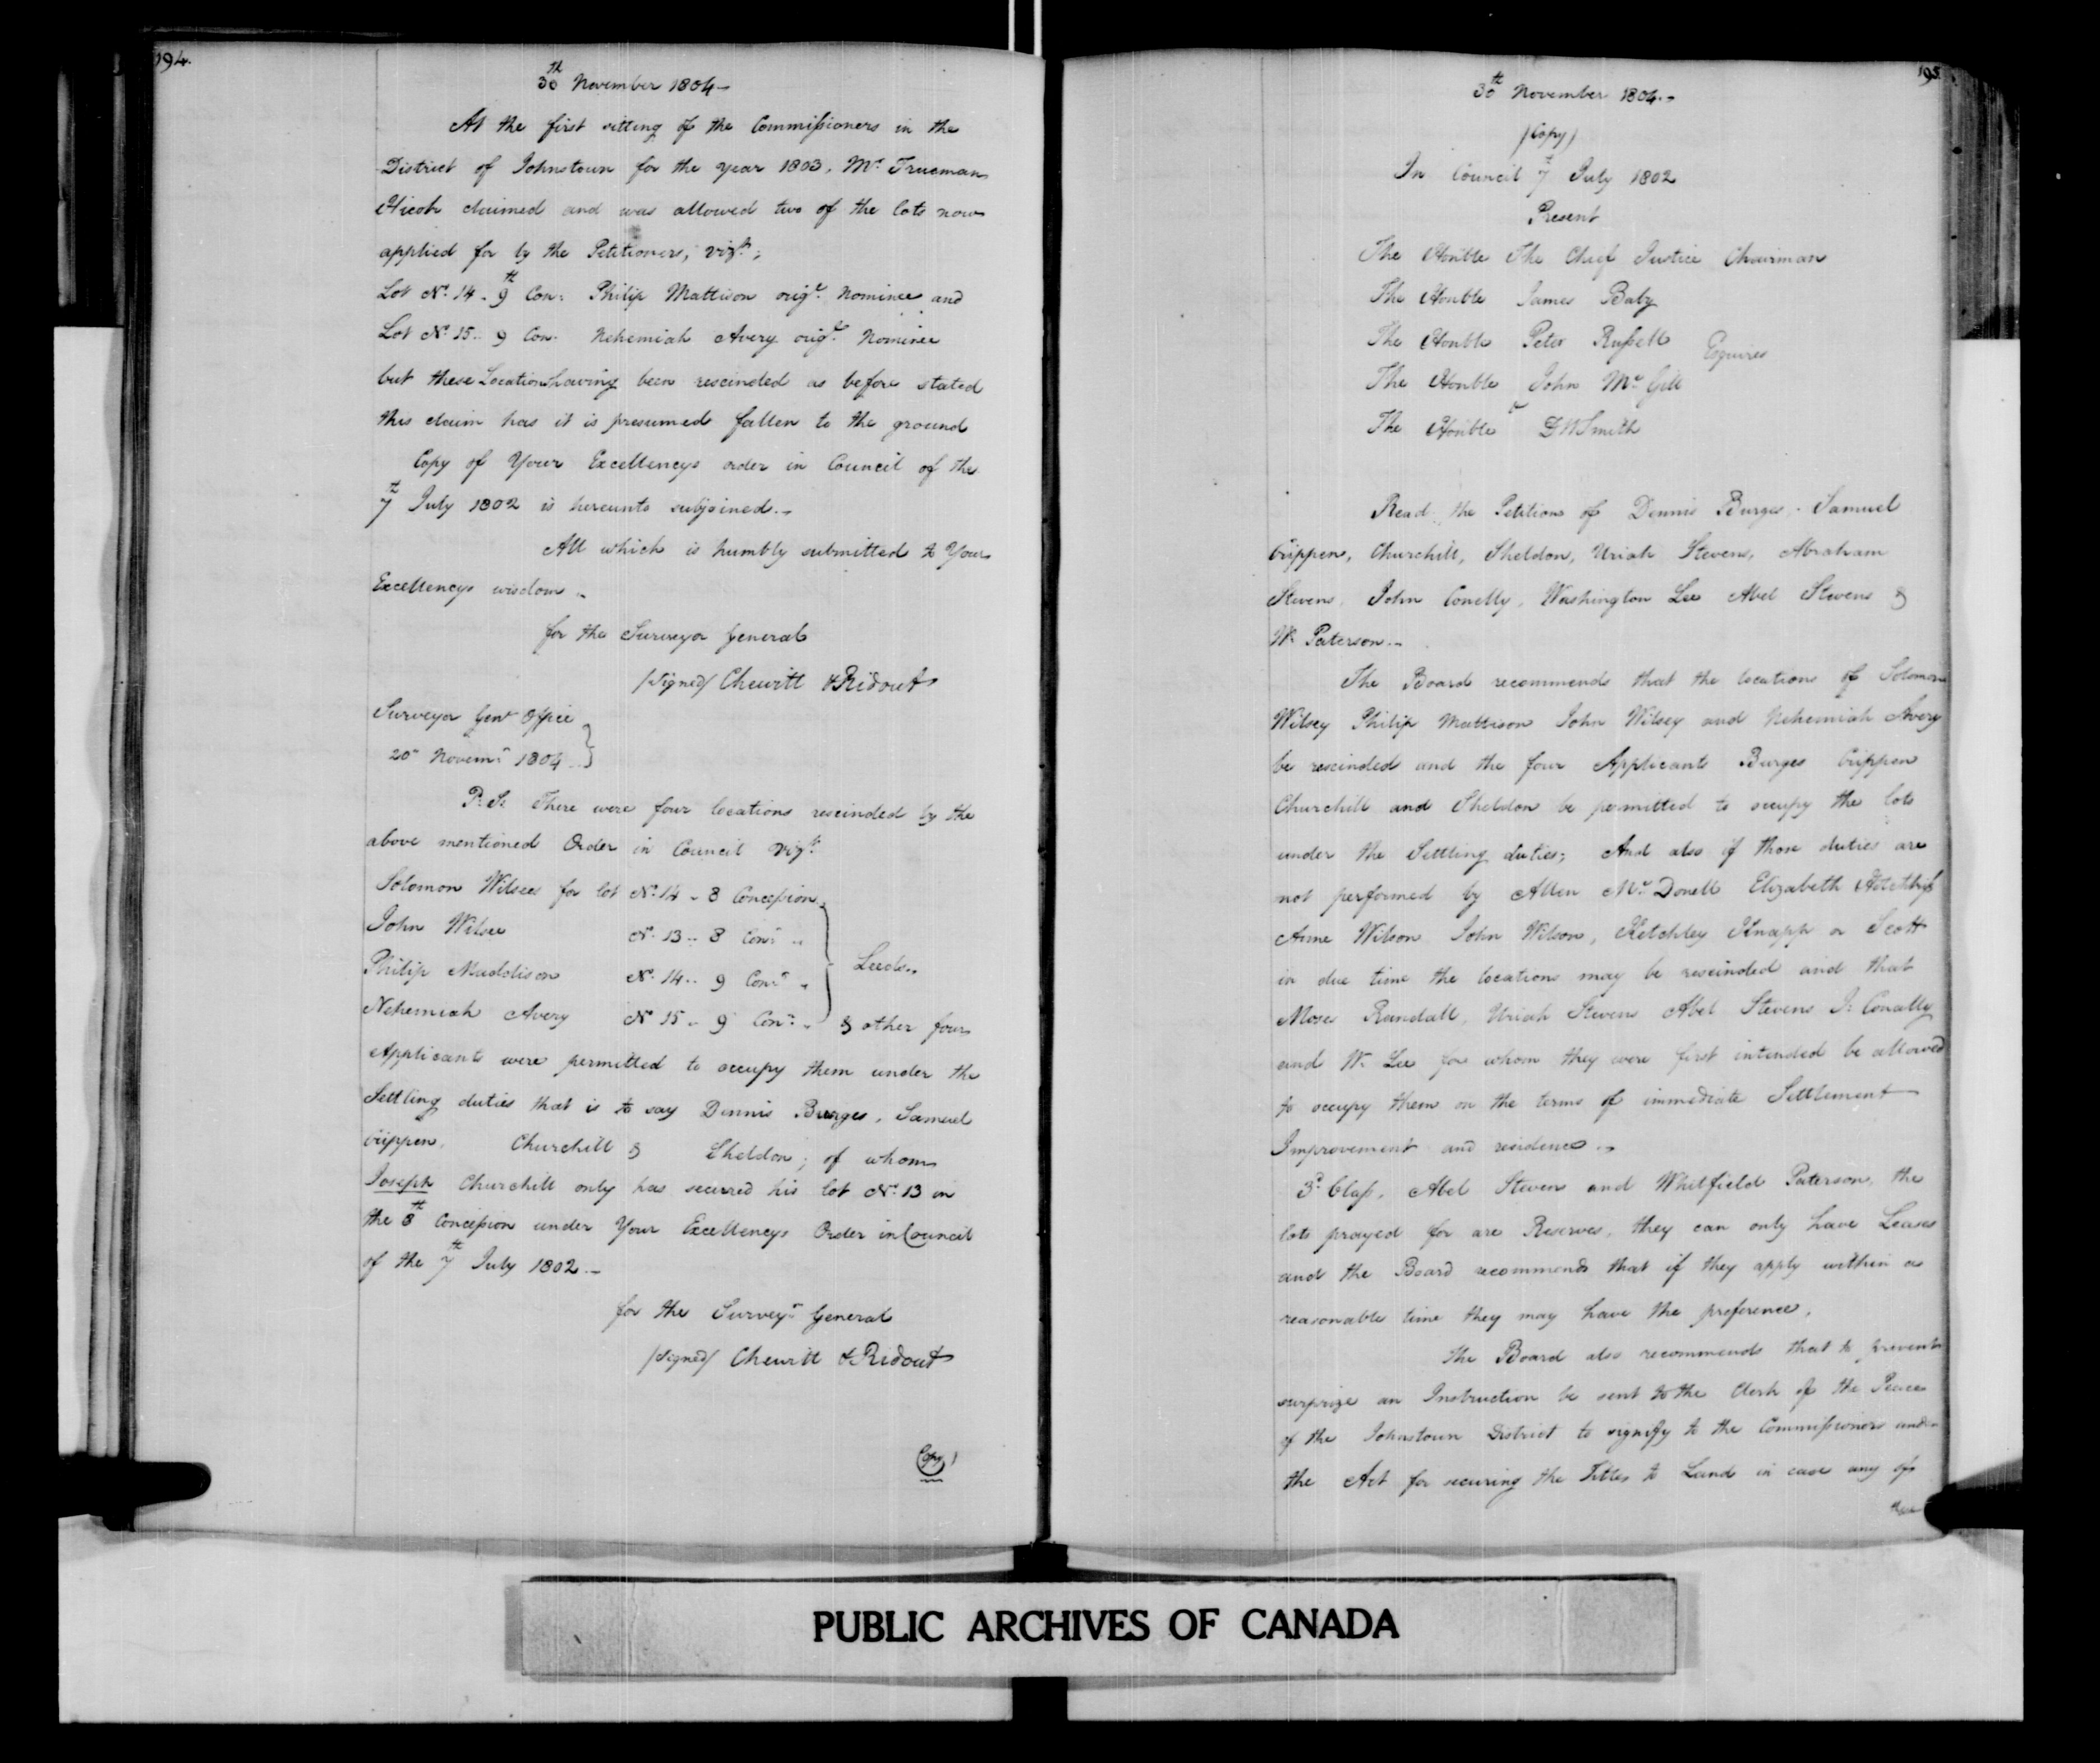 194.
30th November 1804 -
At the first sitting of the Commissioners in the
District of Johnstown for the year 1803, Mr. Trueman
Hicok claimed and was allowed two of the lots now
applied for by the Petitioners, vizt.,
Lot No. 14 - 9th Con: Philip Mattison origl. Nominee and
Lot No. 15 .. 9 Con. Nehemiah Avery origl. Nominee
but these Locations having been rescinded as before stated
this claim has it is presumed fallen to the ground
Copy of Your Excellencys order in Council of the
7th July 1802 is hereunto subjoined. -
All which is humbly submitted to Your
Excellencys wisdom -
for the Surveyor General
/signed/ Chewitt & Ridout
Surveyor Genl Office
20 Novemr 1804
P.S. There were four locations rescinded by the
above mentioned Order in Council vizt.
Solomon Wilsee for lot No. 14 - 8 Concession
John Wilsee No. 13 .. 8 Conn ..
Philip Maddison No. 14 .. 9 Conn .. Leeds ..
Nehemiah Avery No 15 .. 9 Conn .. & other four
Applicants were permitted to occupy them under the
Settling duties that is to say Dennis Burges, Samuel
Crippen, Churchill & Sheldon; of whom
Joseph Churchill only has secured his lot No. 13 in
the 8th Concession under Your Excellencys Order in Council
of the 7th July 1802. -
for the Surveyr General
/signed/ Chewitt & Ridout
Copy)
195
30th November 1804. -
/Copy/
In Council 7th July 1802
Present
The Honble The Chief Justice Chairman
The Honble James Baby
The Honble Peter Russell
Esquires
The Honble John McGill
The Honble & D W Smith
Read the Petitions of Dennis Burges, Samuel
Crippen, Churchill, Sheldon, Uriah Stevens, Abraham
Stevens, John Conelly, Washington Lee Abel Stevens &
W. Paterson. -
The Board recommends that the locations of Solomon
Wilsey Philip Mattison John Wilsey and Nehemiah Avery
be rescinded and the four Applicants Burges Crippen
Churchill and Sheldon be permitted to occupy the lots
under the Settling duties; And also if those duties are
not performed by Allen McDonell Elizabeth
Anne Wilson John Wilson, Ketchley Knapp or Scott
in due time the locations may be rescinded and that
Moses Randall, Uriah Stevens Abel Stevens Jr. Conally
and W. Lee for whom they were first intended be allowed
to occupy them on the terms of immediate Settlement
Improvement and residence. -
3d Class, Abel Stevens and Whitfield Paterson, the
lots prayed for are Reserves, they can only have Leases
and the Board recommends that if they apply within a
reasonable time they may have the preference.
The Board also recommends that to prevent
surprize an Instruction be sent to the Clerk of the Peace
of the Johnstown District to signify to the Commissioners under
the Act for securing the Titles to Land in case any of
the
PUBLIC ARCHIVES OF CANADA